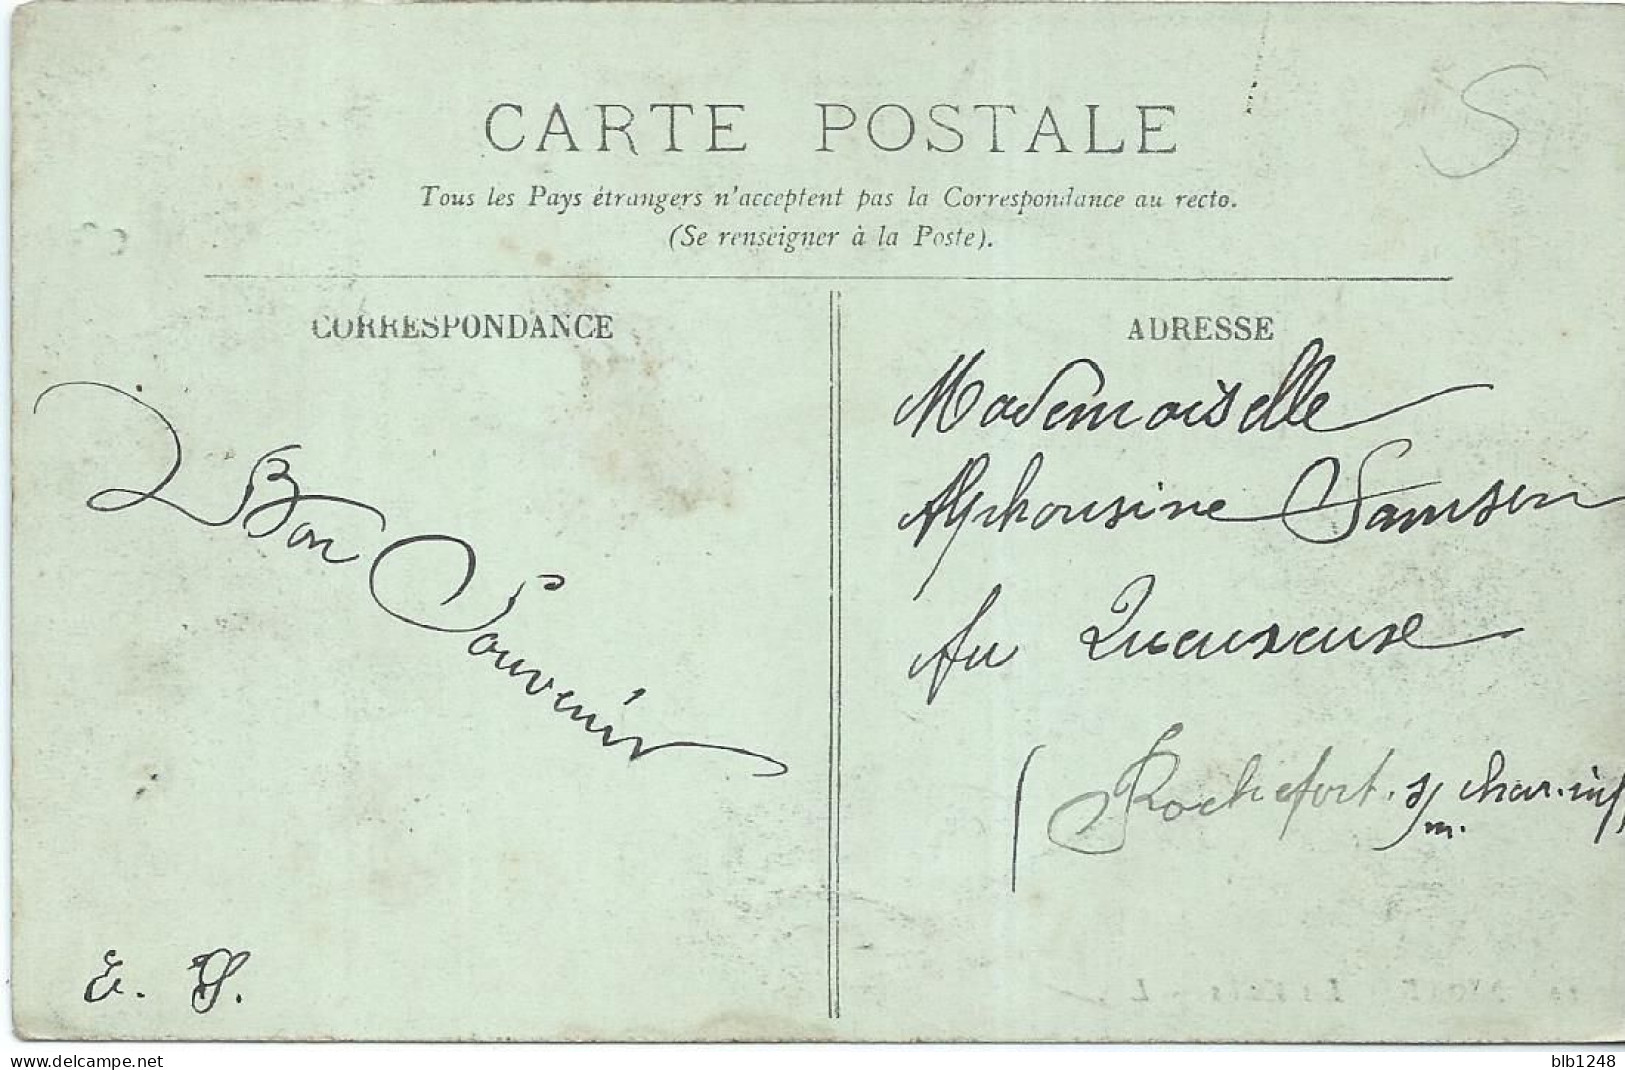 S
CARTE POSTALE
Tous les Pays étrangers n'acceptent pas la Correspondance au recto.
(Se renseigner à la Poste).
CORRESPONDANCE
Bon
Souvenir
E. S.
ADRESSE
Mademoiselle
Alphonsine Samson
Au Queureuse
(Rochefort. s/m. char. inf
www.delcampe.net
blb1248